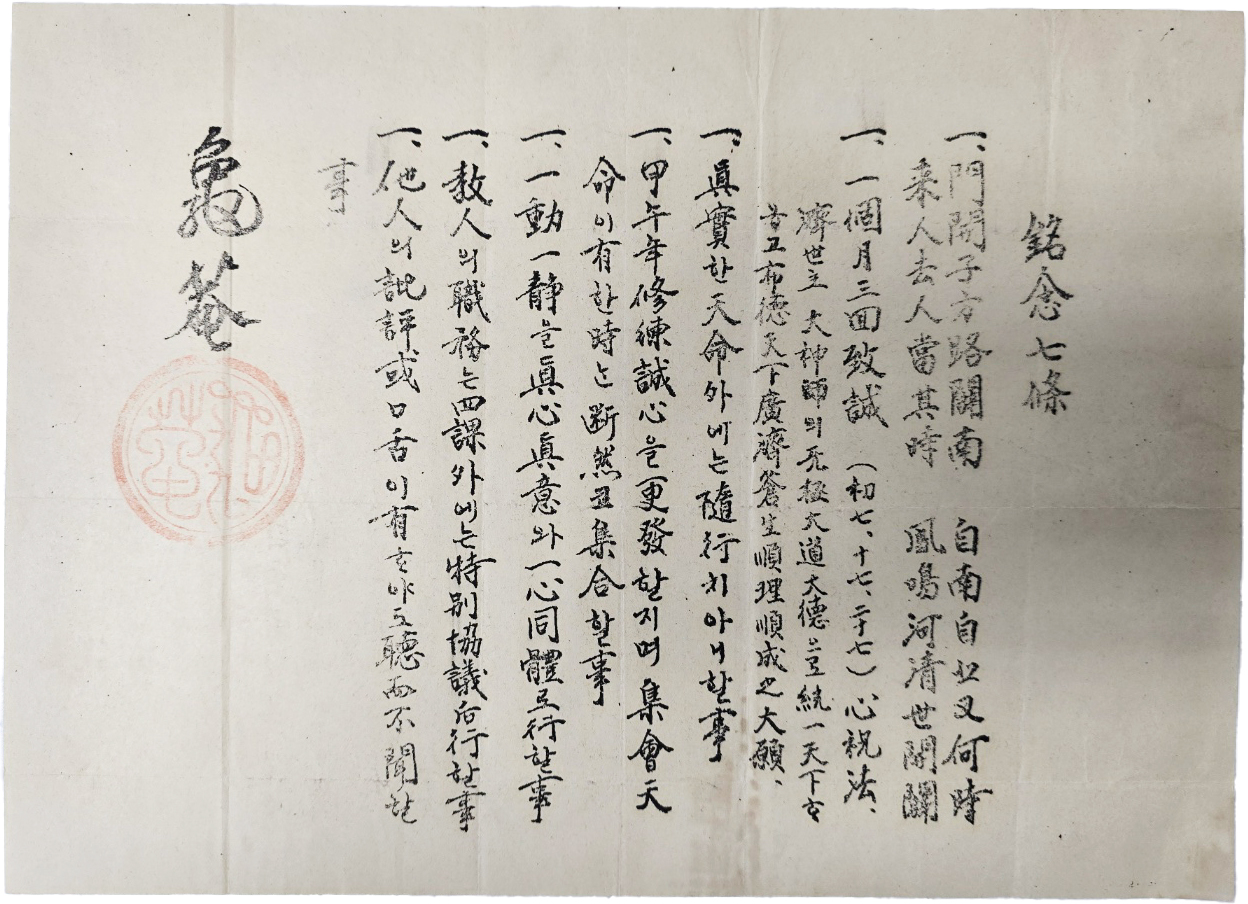 銘念七條
一、門開子方路闢南 自南自北又何時
來人去人當其時 鳳鳴河清世開闢
一、一個月三回致誠 (初七、十七、二十七) 心祝法、
濟世主 大神師의 无極大道大德으로 統一天下ᄒᆞ
옵고 布德天下廣濟蒼生順理順成之大願、
一、眞實한 天命外에는 隨行치아니할事
一、甲午年修練誠心을 更發할지며 集會天
命이有한時는 斷然코集合할事
一、一動一静을 眞心眞意와 一心同體로行할事
一、敎人의 職務는 四課外에는 特別協議后行할事
一、他人의 訛評或口舌이有ᄒᆞ야도 聽而不聞할
事
龜菴